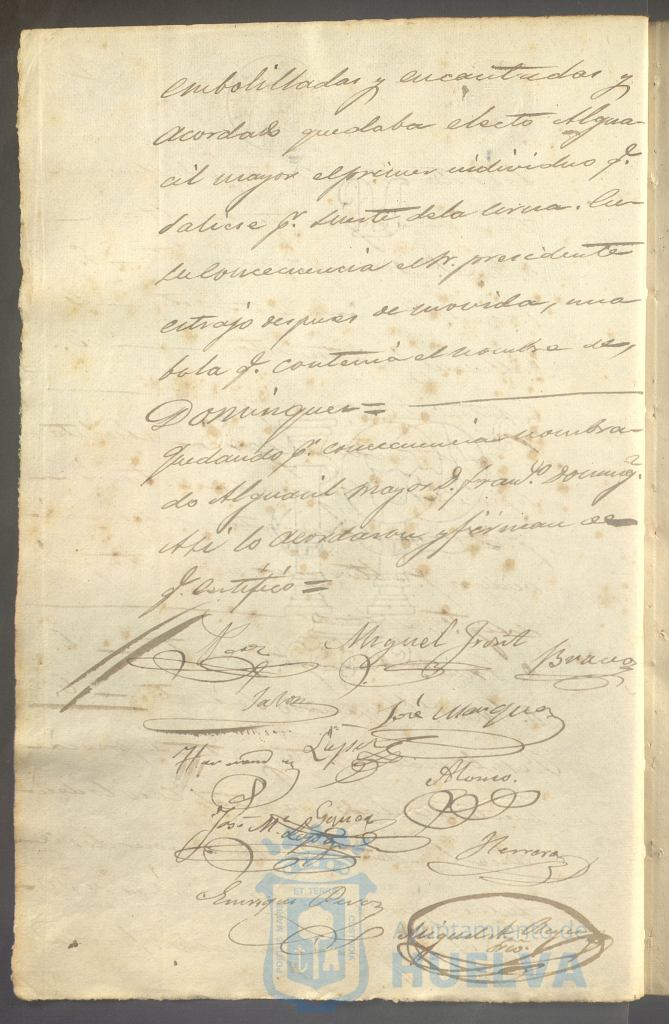 embolilladas y encantradas y
acordado quedaba electo Algua-
cil mayor el primer individuo q.
saliese p.r suerte de la urna. En
su concecuencia el Sr. presidente
estrajo despues de movida, una
bola q. contenia el nombre de,
Dominguez =
Quedando p.r concecuencia nombra-
do Alguacil mayor D. Fran.co Doming.z
Asi lo acordaron y firman de
q. certifico =
Miguel Bravo
José Marquez
Lopez
Alonso.
José M.a Lopez
Herrera
Enrique
Miguel
Ayuntamiento de
HUELVA